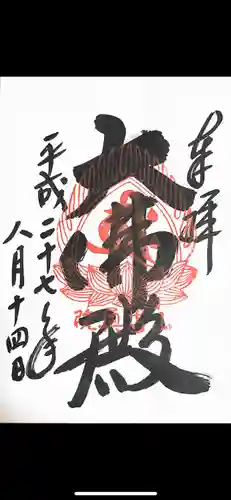 奉拝
大佛殿
平成二十七年
八月十四日